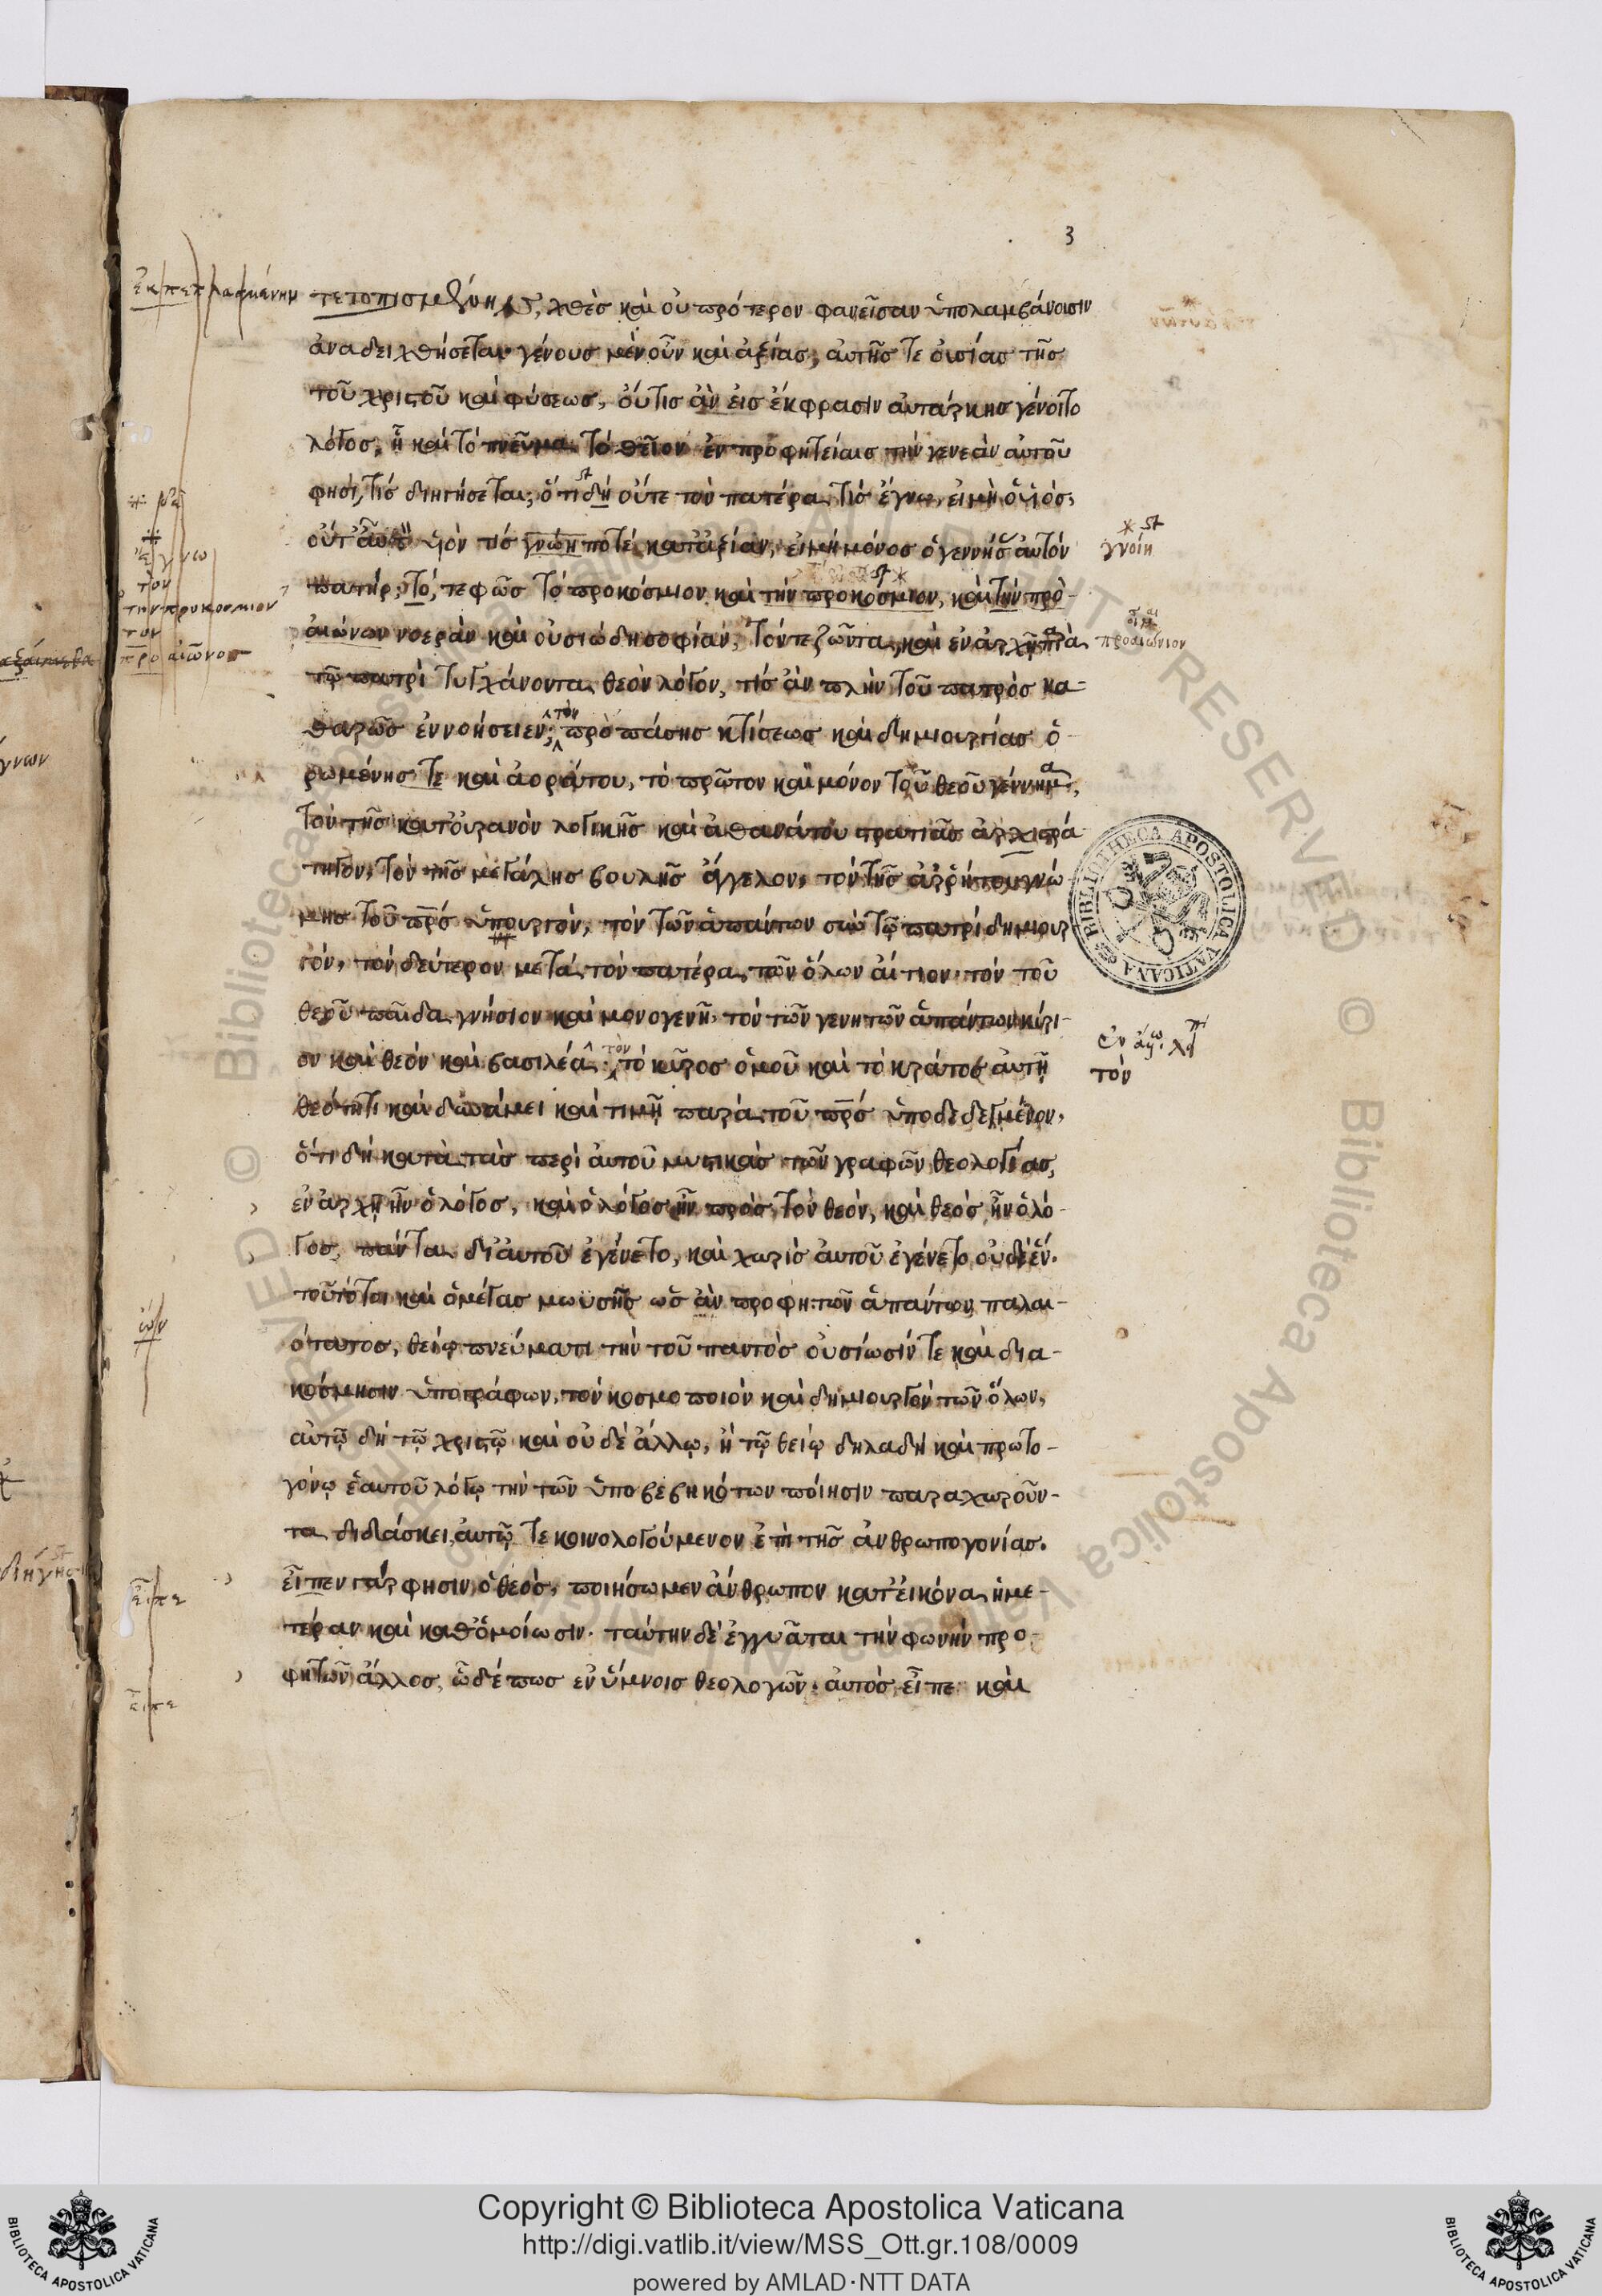 3
τετοπισμένην, χθὲς καὶ οὐ πρότερον φανεῖσαν ὑπολαμβάνουσιν
ἀναδειχθήσεται· γένους μὲν οὖν καὶ ἀξίας, αὐτῆς τε οὐσίας τῆς
τοῦ χριστοῦ καὶ φύσεως, οὔτις ἂν εἰς ἔκφρασιν αὐτάρκης γένοιτο
λόγος, ᾗ καὶ τὸ πνεῦμα τὸ θεῖον ἐν προφητείαις τὴν γενεὰν αὐτοῦ
φησί, τίς διηγήσεται; ὅτι δὴ οὔτε τὸν πατέρα τίς ἔγνω, εἰ μὴ ὁ υἱός,
οὔτ' αὖ τὸν υἱόν τίς γνώη ποτὲ κατ' ἀξίαν, εἰ μὴ μόνος ὁ γεννήσας αὐτὸν
πατήρ; τό, τε φῶς τὸ προκόσμιον καὶ τὴν προκόσμιον, καὶ τὴν πρὸ
αἰώνων νοερὰν καὶ οὐσιώδη σοφίαν, τόν τε ζῶντα, καὶ ἐν ἀρχῇ παρὰ
τῷ πατρὶ τυγχάνοντα θεὸν λόγον, τίς ἂν πλὴν τοῦ πατρὸς κα-
θαρῶς ἐννοήσειεν; τὸν πρὸ πάσης κτίσεως καὶ δημιουργίας ὁ-
ρωμένης τε καὶ ἀοράτου, τὸ πρῶτον καὶ μόνον τοῦ θεοῦ γέννημα,
τὸν τῆς κατ' οὐρανὸν λογικῆς καὶ ἀθανάτου στρατιᾶς ἀρχιστρά
τηγον, τὸν τῆς μεγάλης βουλῆς ἄγγελον, τὸν τῆς ἀρρήτου γνώ-
μης τοῦ πρς ὑπουργόν, τὸν τῶν ἁπάντων σὺν τῷ πατρὶ δημιουρ
γόν, τὸν δεύτερον μετὰ τὸν πατέρα τῶν ὅλων αἴτιον· τὸν τοῦ
θεοῦ παῖδα γνήσιον καὶ μονογενῆ, τὸν τῶν γενητῶν ἁπάντων κύρι-
ον καὶ θεὸν καὶ βασιλέα· τὸν τὸ κῦρος ὁμοῦ καὶ τὸ κράτος αὐτῇ
θεότητι καὶ δυνάμει καὶ τιμῇ παρὰ τοῦ πρς ὑποδεδεγμένον,
ὅτι δὴ κατὰ τὰς περὶ αὐτοῦ μυστικὰς τῶν γραφῶν θεολογίας,
ἐν ἀρχῇ ἦν ὁ λόγος, καὶ ὁ λόγος ἦν πρὸς τὸν θεόν, καὶ θεὸς ἦν ὁ λό-
γος, πάντα δι' αὐτοῦ ἐγένετο, καὶ χωρὶς αὐτοῦ ἐγένετο οὐδὲ ἕν.
τοῦτό τοι καὶ ὁ μέγας μωϋσῆς ὡς ἂν προφητῶν ἁπάντων παλαι-
ότατος, θείῳ πνεύματι τὴν τοῦ παντὸς οὐσίωσίν τε καὶ δια-
κόσμησιν ὑπογράφων, τὸν κοσμοποιὸν καὶ δημιουργὸν τῶν ὅλων,
αὐτῷ δὴ τῷ χριστῷ καὶ οὐδὲ ἄλλῳ, ἢ τῷ θείῳ δηλαδὴ καὶ πρωτο-
γόνῳ ἑαυτοῦ λόγῳ τὴν τῶν ὑποβεβηκότων ποίησιν παραχωροῦν-
τα διδάσκει, αὐτῷ τε κοινολογούμενον ἐπὶ τῆς ἀνθρωπογονίας.
εἶπεν γάρ φησιν ὁ θεὸς, ποιήσωμεν ἄνθρωπον κατ' εἰκόνα ἡμε-
τέραν καὶ καθ' ὁμοίωσιν. ταύτην δὲ ἐγγυᾶται τὴν φωνὴν προ-
φητῶν ἄλλος, ὧδέ πως ἐν ὕμνοις θεολογῶν· αὐτὸς εἶπε καὶ
ἔγνω
τὸν
τὴν προκόσμιον
τὸν
πρὸ αἰῶνος
εἶπε
εἶπε
γνοίη
προαιώνιον
τὸν
BIBLIOTHECA APOSTOLICA VATICANA
Copyright © Biblioteca Apostolica Vaticana
http://digi.vatlib.it/view/MSS_Ott.gr.108/0009
powered by AMLAD·NTT DATA
BIBLIOTECA APOSTOLICA VATICANA
BIBLIOTECA APOSTOLICA VATICANA